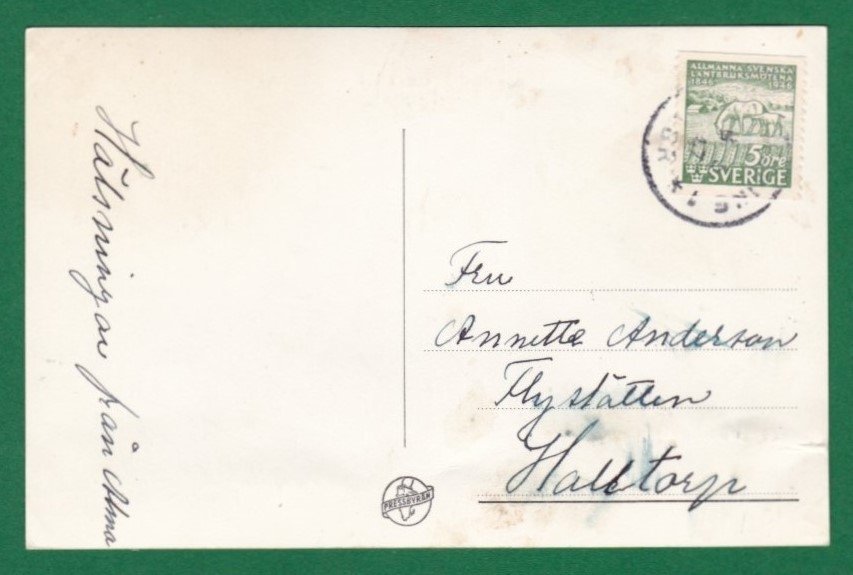 Hälsningar från Alma
ALLMÄNNA SVENSKA
LANTBRUKSMÖTENA
1846 1946
5 öre
SVERIGE
Fru
Annette Anderson
Flystätten
Halltorp
PRESSBYRÅN